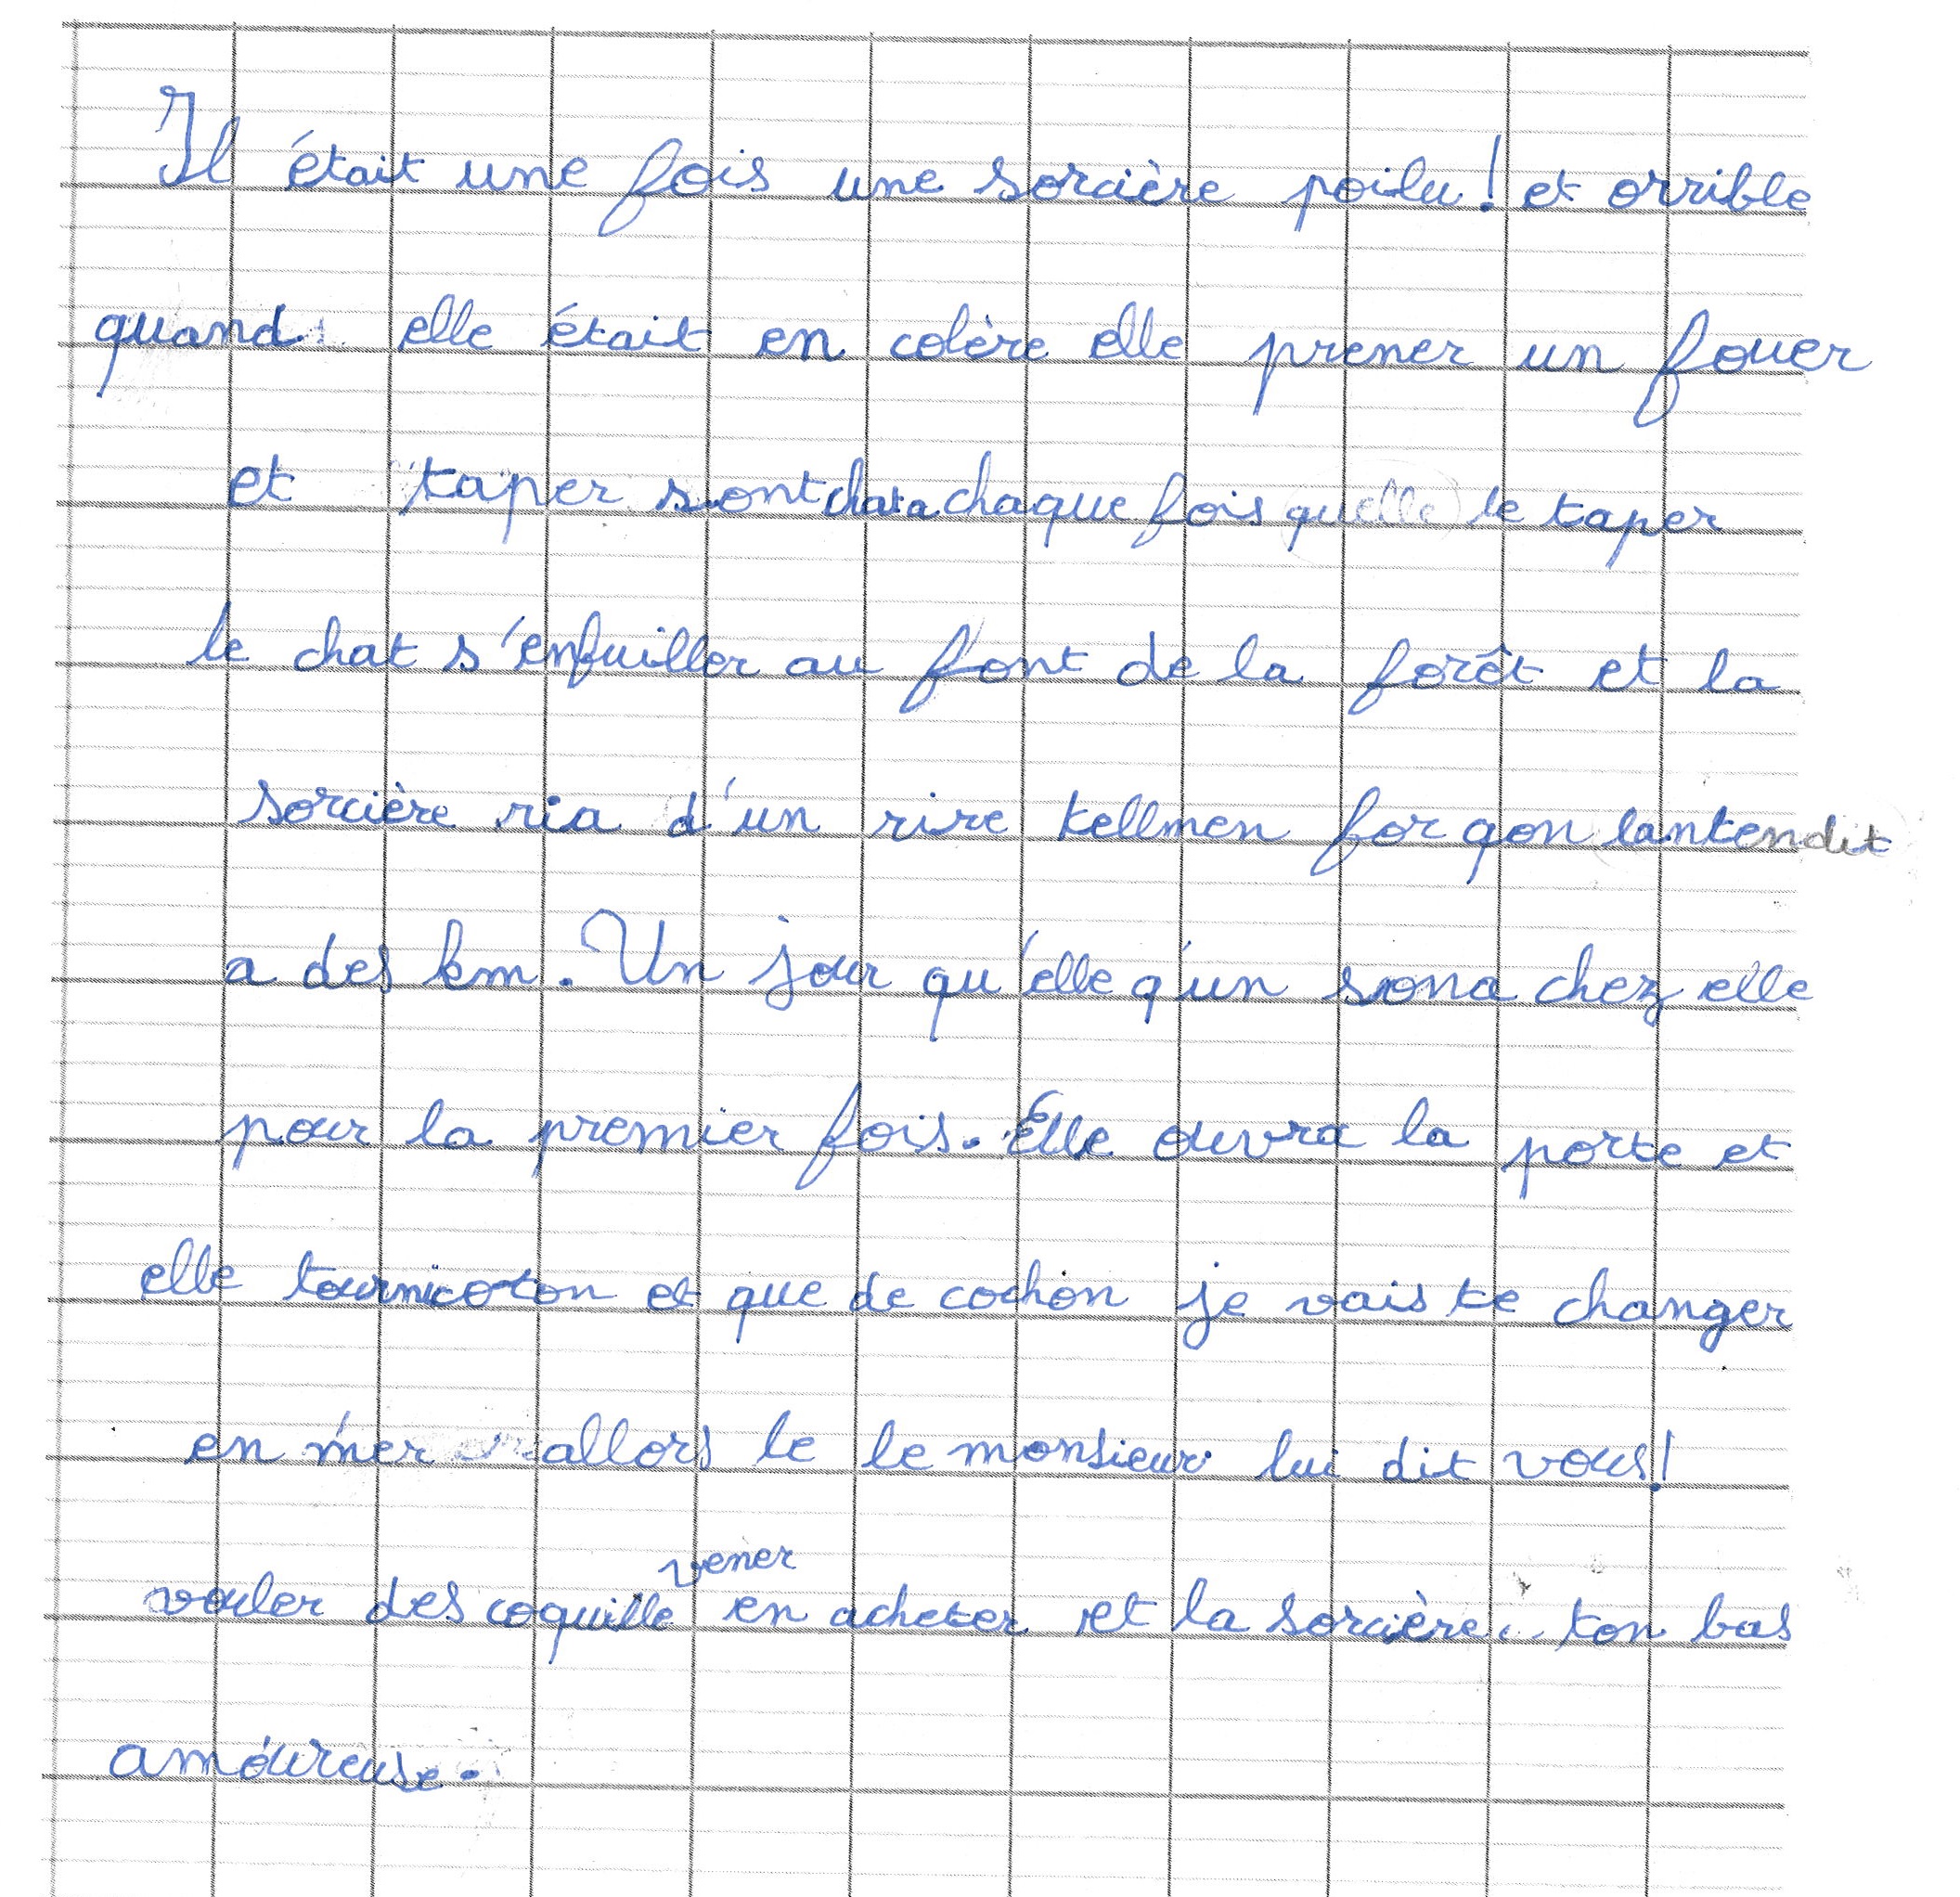 Il était une fois une sorcière poilu! et orrible
quand elle était en colère elle prener un fouer
et taper sont chat a chaque fois quelle le taper
le chat s'enfuiller au font de la forêt et la
sorcière ria d'un rire tellmen for qon lantendit
a des km. Un jour qu'elle q'un sona chez elle
pour la premier fois. Elle ouvra la porte et
elle tournicoton et que de cochon je vais te changer
en mer allors le le monsieur lui dit vous!
vouler des coquille vener en acheter et la sorcière ton bas
amoureuse.